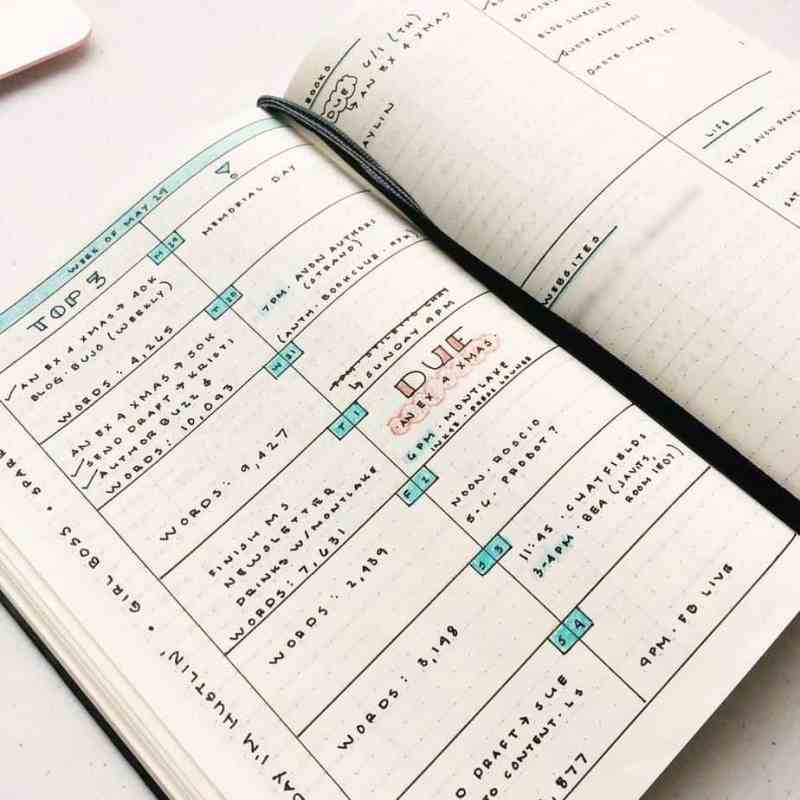 WEEK OF MAY 29
TOP 3
AN EX 4 XMAS → 40K
BLOG: BUJO (WEEKLY)
WORDS: 4,265
M 29
MEMORIAL DAY
AN EX 4 XMAS → 50K
SEND DRAFT → KRISTI
AUTHOR BUZZ $
WORDS: 10,093
T 30
7PM. AVON AUTHORS
(STRAND)
(AUTH. BOOKCLUB.
WORDS: 9,427
W 31
↳ SUNDAY 9PM
FINISH MS
NEWSLETTER
DRINKS W/MONTLAKE
WORDS: 7,631
T 1
DUE
AN EX 4 XMAS.
6PM. MONTLAKE
WORDS: 2,439
F 2
NOON. ROSCIO
S.G. PRODOT?
WORDS: 3,148
S 3
11:45 . CHATFIELDS
3-4PM . BEA (JAVITS,
ROOM 1E07)
DRAFT → SUE
TO CONTENT. LS
877
S 4
4PM. FB LIVE
SPAR
• GIRL BOSS •
DAY I'M HUSTLIN'
BOOKS
DUE 6/1 (TH)
↳ AN EX 4 XMAS
AYLIN
BLOG SCHEDULE
LIFE
TUE:
TH:
SAT
WEBSITES